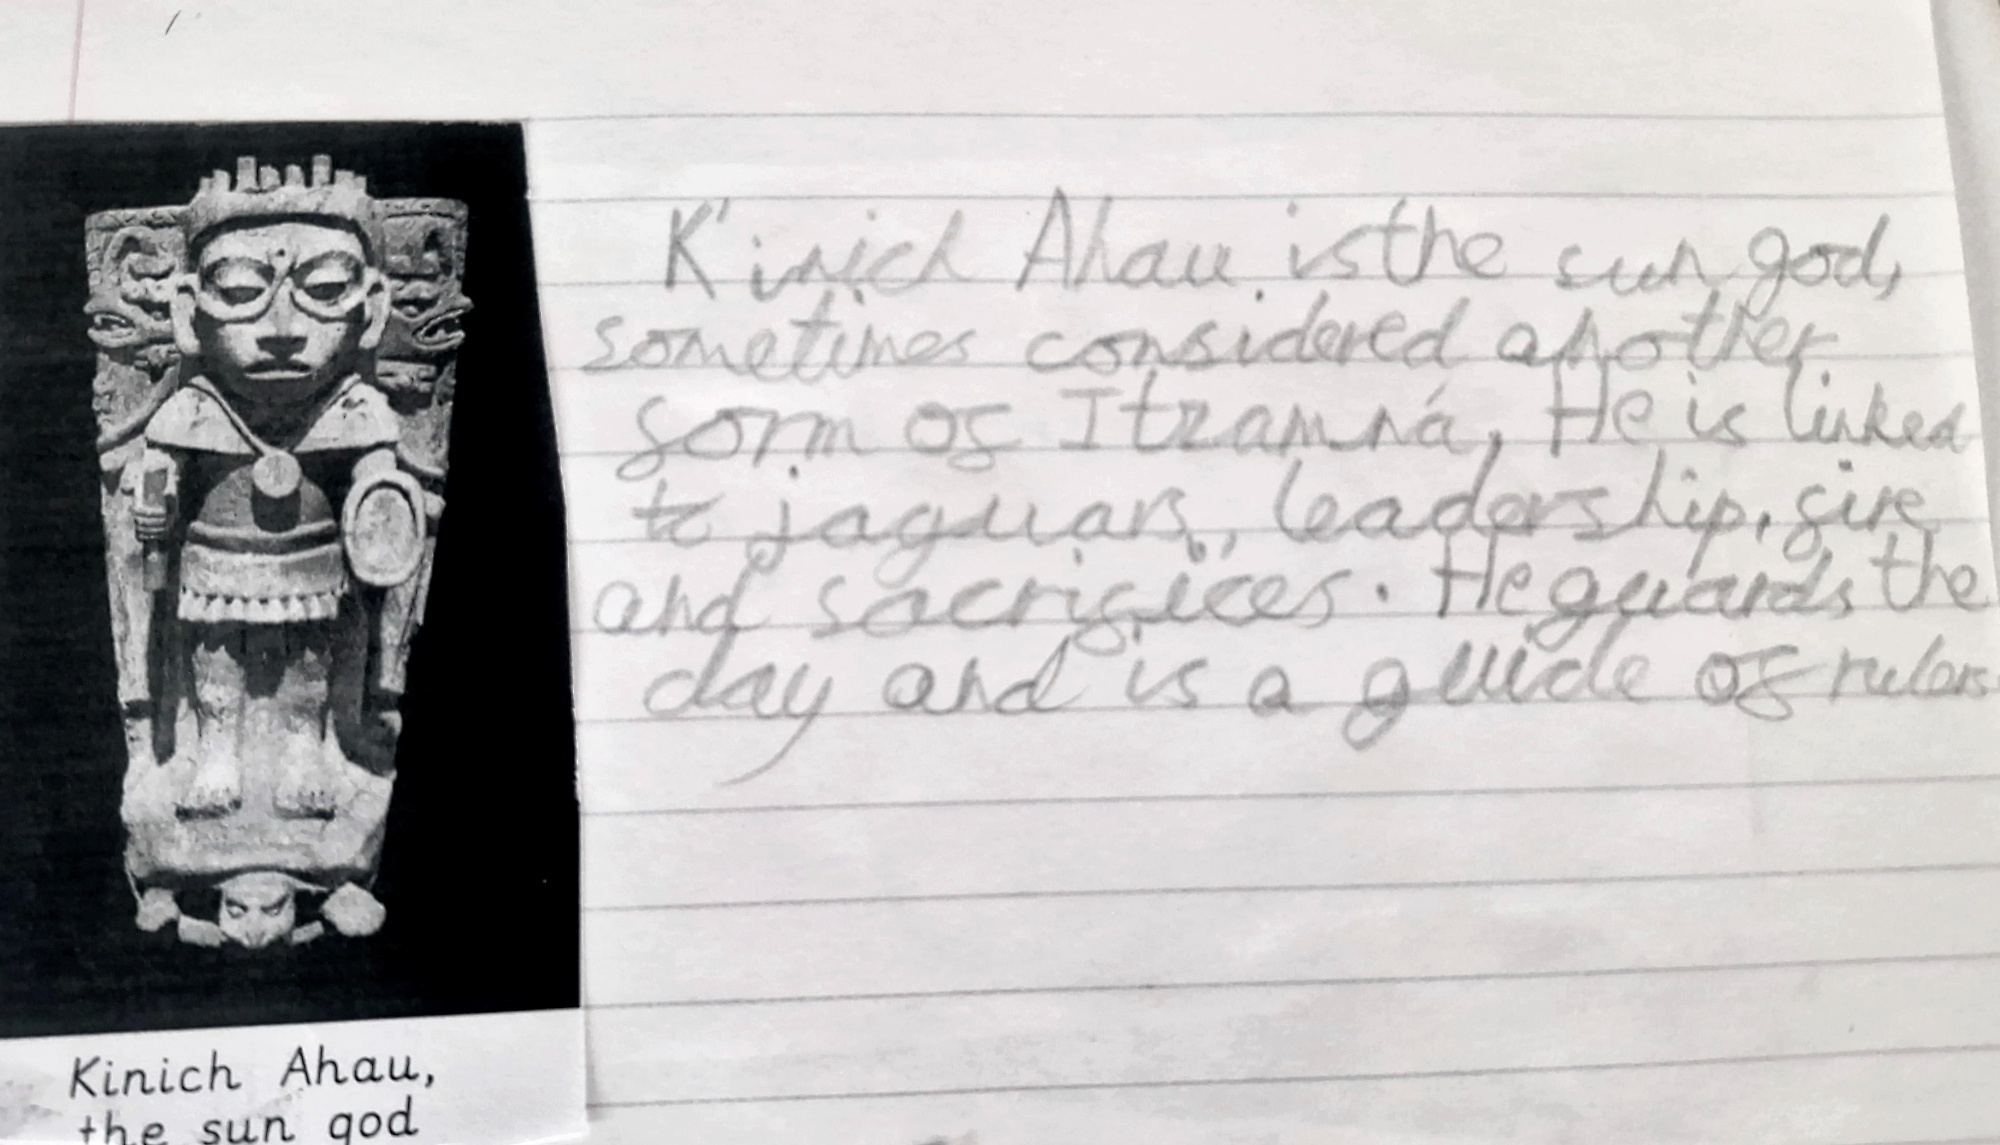 K'inich Ahau is the sun god,
sometimes considered another
form of Itzamná, He is linked
to jaguars, leadership, fire
and sacrifices. He guards the
day and is a guide of rulers.
Kinich Ahau,
the sun god